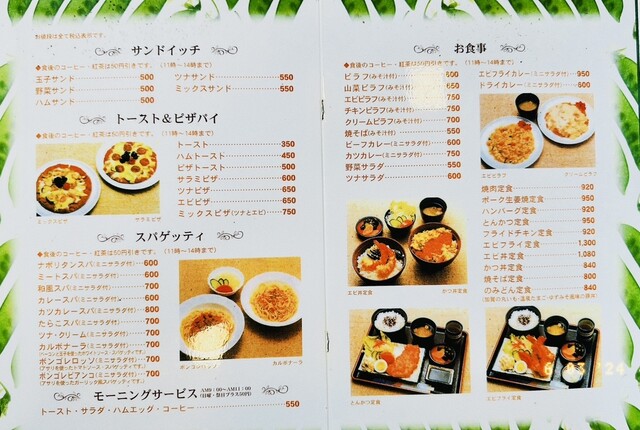 お値段は全て税込表示です。
サンドイッチ
◆食後のコーヒー・紅茶は50円引きです。(11時〜14時まで)
玉子サンド 500
野菜サンド 500
ハムサンド 500
ツナサンド 550
ミックスサンド 550
トースト&ピザパイ
◆食後のコーヒー・紅茶は50円引きです。(11時〜14時まで)
トースト 350
ハムトースト 450
ピザトースト 500
サラミピザ 600
ツナピザ 650
エビピザ 650
ミックスピザ(ツナとエビ) 750
ミックスピザ
サラミピザ
スパゲッティ
◆食後のコーヒー・紅茶は50円引きです。(11時〜14時まで)
ナポリタンスパ(ミニサラダ付) 600
ミートスパ(ミニサラダ付) 600
和風スパ(ミニサラダ付) 700
カレースパ(ミニサラダ付) 700
カツカレースパ(ミニサラダ付) 800
たらこスパ(ミニサラダ付) 700
ツナ・クリーム(ミニサラダ付) 700
カルボナーラ(ミニサラダ付) 700
(ベーコンと玉子を使ったホワイトソース・スパゲッティです。)
ボンゴレロッソ(ミニサラダ付) 700
(アサリを使ったトマトソース・スパゲッティです。)
ボンゴレビアンコ(ミニサラダ付) 700
(アサリを使ったガーリック風スパゲッティです。)
カルボナーラ
モーニングサービス
AM8:00〜AM11:00
(日曜・祭日プラス50円)
トースト・サラダ・ハムエッグ・コーヒー 550
お食事
◆食後のコーヒー・紅茶は50円引きです。(11時〜14時まで)
ピラフ(みそ汁付) 600
山菜ピラフ(みそ汁付) 650
エビピラフ(みそ汁付) 750
チキンピラフ(みそ汁付) 650
クリームピラフ(みそ汁付) 700
焼そば(みそ汁付) 550
ビーフカレー(ミニサラダ付) 600
カツカレー(ミニサラダ付) 750
野菜サラダ 500
ツナサラダ 600
エビフライカレー(ミニサラダ付) 950
ドライカレー(ミニサラダ付) 600
エビピラフ
クリームピラフ
焼肉定食 920
ポーク生姜焼定食 920
ハンバーグ定食 920
とんかつ定食 950
フライドチキン定食 920
エビフライ定食 1,300
エビ丼定食 1,080
かつ丼定食 840
焼そば定食 800
のみどん定食 840
エビ丼定食
かつ丼定食
とんかつ定食
エビフライ定食